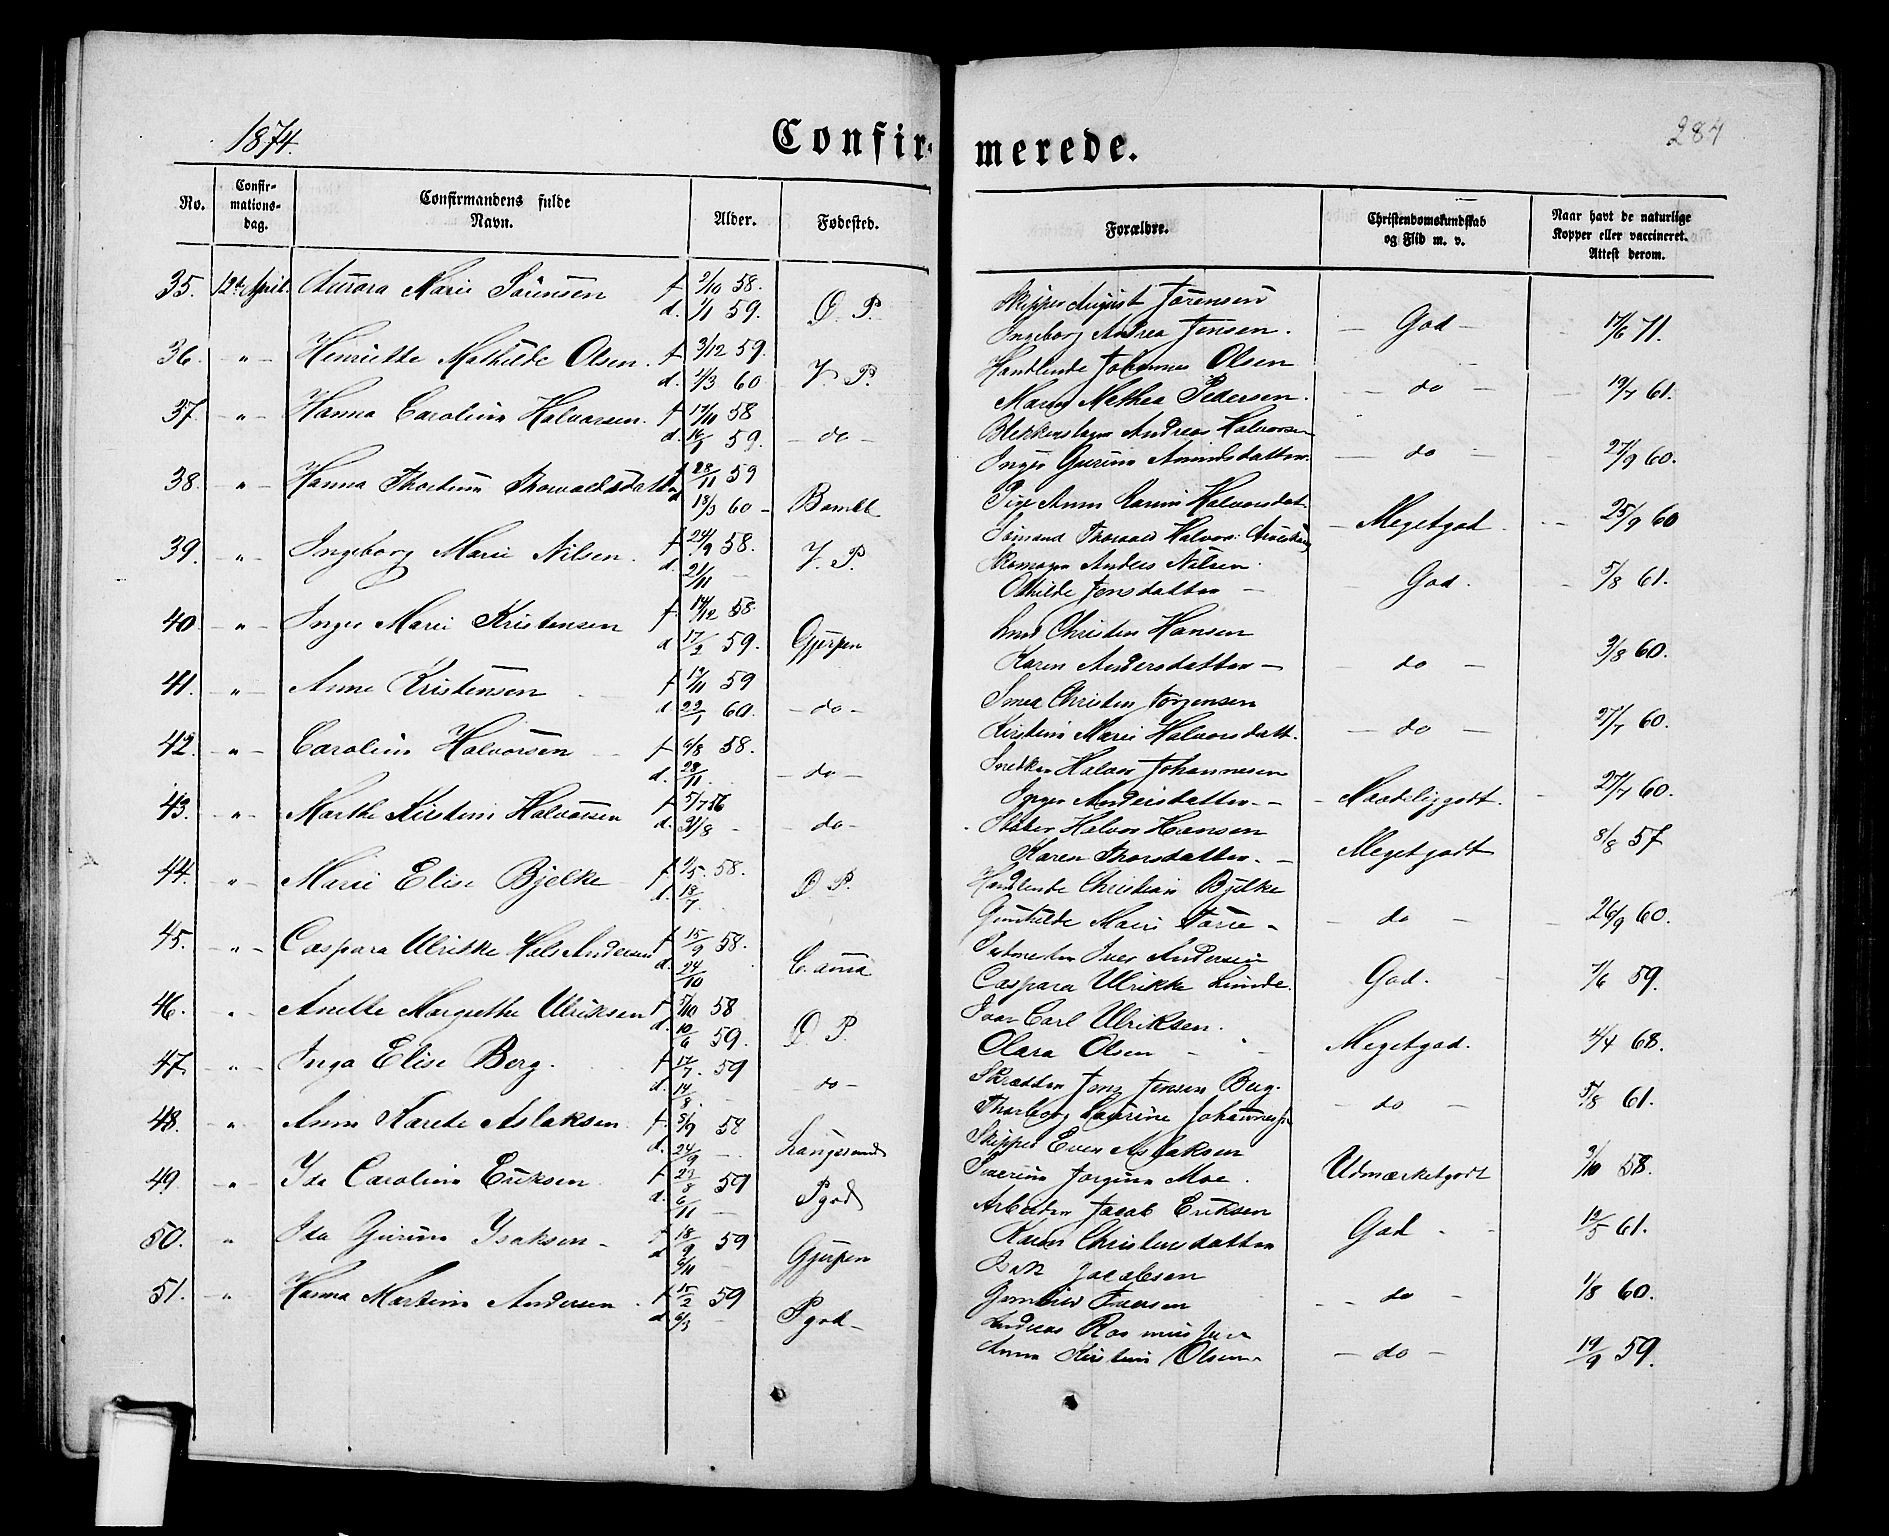 1874.
Confirmerede.
284
No.
Confirmationsdag.
Confirmandens fulde Navn.
Alder.
Fødested.
Forældre.
Christendomskundskab og Flid m. v.
Naar havt de naturlige Kopper eller vaccineret. Attest derom.
35. 12te April. Aurora Marie Sörensen f. 2/10 58.
d. 1/1 59. Ø. P.
Skipper August Jörensen
Ingeborg Andrea Jensen. — God — 17/6 71.
36. " Henriette Mathilde Olsen. f. 3/12 59.
d. 4/3 60 V. P.
Handlende Johannes Olsen
Maren Mathea Pedersen. — do — 19/7 61.
37. " Hanna Caroline Halvorsen. f. 14/11 58
d. 16/1 59. — do —
Blikkenslager Andreas Halvorsen
Inger Gurine Amundsdatter. — do — 27/9 60.
38. " Hanna Thorvaldsdatter f. 28/11 59
d. 18/3 60 — Bamble
Pige Anne Karine Halvorsdat.
Sömand Thorvald Halvors. — Megetgod. 25/9 60
39. " Ingeborg Marie Nilsen. f. 24/9 58.
d. 21/11 — V. P.
Skomager Anders Nilsen.
Othilde Jensdatter — — God. — 5/8 61.
40. " Inger Marie Kristensen f. 14/12 58.
d. 17/2 59. Gjerpen
Christen Hansen
Karen Andersdatter — — do — 3/8 60.
41. " Anne Kristensen f. 12/11 59
d. 22/1 60. — do —
Smed Christen Jörgensen
Kirstine Marie Halvorsdatt. — do — 27/7 60.
42. " Caroline Halvorsen f. 6/8 58.
d. 28/11. — do —
Snedker Halvor Johannesen
Inger Andersdatter — — Maadeliggodt. 27/7 60.
43. " Marthe Kirstine Halvorsen f. 5/7 56
d. 31/8 — — do —
Halvor Hansen
Karen Thorsdatter. — Megetgodt 8/8 57
44. " Marie Elise Bjelke f. 2/5. 58.
d. 18/7 Ø P.
Handlende Christian Bjelke
Gunhilde Marie — — do — 26/9 60.
45. " Caspara Ulrikke Hals Andersen f. 15/9 58.
d. 24/10
Iver Andersen
Caspara Ulrikke Lunde. God. — 7/6 59.
46. " Anette Margrethe Ulriksen f. 5/10 58
d. 10/6 59. Ø. P.
Carl Ulriksen.
Clara Olsen — " — Megetgod. 4/4 68.
47. " Inga Elise Berg. f. 12/7. 59
d. 14/8. — do —
Skrædder Jens Jensen Berg.
Thorborg Laurine — do — 5/8 61.
48. " Anne Karete Aslaksen f. 3/9 58
d. 24/9 — Langesund
Skipper Even Aslaksen
Severine Jörgine Moe. Udmærketgodt 3/10 58.
49. " Ida Caroline Eriksen. f. 23/8 59
d. 6/11 — Pgod
Arbeider Jacob Eriksen
Karen Christensdatter God — 12/5 61.
50. " Ida Gurine Isaksen — f. 18/9 59
d. 9/11 — Gjerpen
Isak Jacobsen
Gunhild Iversen — do — 1/8 60.
51. " Hanna Martine Andersen. f. 15/2 59
d. 6/3 — Pgod —
Andreas
Anne Kirstine Olsen — do — 19/9 59.